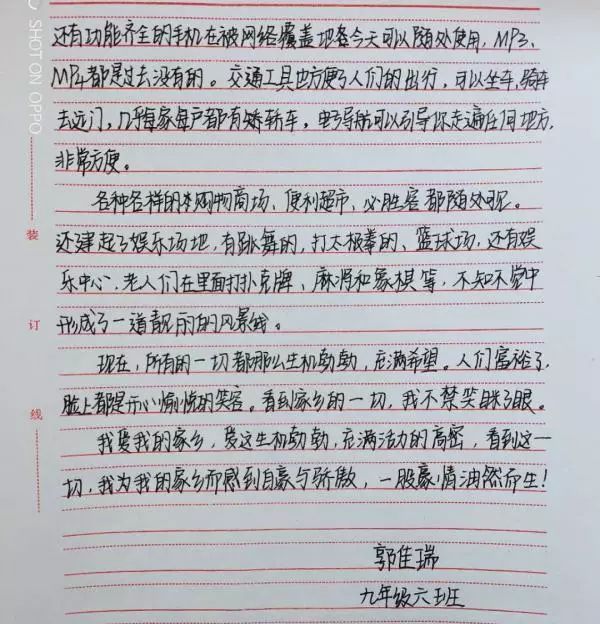 SHOT ON OPPO
还有功能齐全的手机在被网络覆盖地各今天可以随处使用，MP3、
MP4都是过去没有的。交通工具也方便了人们的出行，可以坐车、骑车
去远门，几乎每家每户都有轿车，电子导航可以引导你走遍任何地方，
非常方便。
各种各样的购物商场、便利超市、必胜客都随处可见。
还建起了娱乐场地，有跳舞的，打太极拳的、篮球场，还有娱
乐中心，老人们在里面打扑克牌、麻将和象棋等，不知不觉中
形成了一道靓丽的风景线。
现在，所有的一切都那么生机勃勃，充满希望。人们富裕了，
脸上都是心愉悦的笑容。看到家乡的一切，我不禁笑眯了眼。
我爱我的家乡，爱这生机勃勃，充满活力的高密，看到这一
切，我为我的家乡而感到自豪与骄傲，一股豪情油然而生！
郭佳瑞
九年级六班
装
订
线